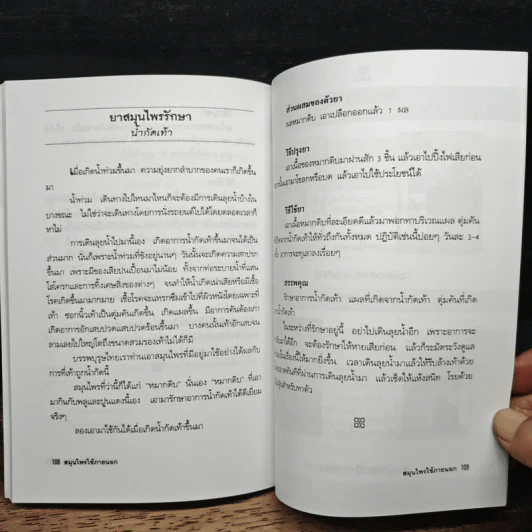 ยาสมุนไพรรักษา
น้ำกัดเท้า
เมื่อเกิดน้ำท่วมขึ้นมา ความยุ่งยากลำบากของคนเราก็เกิดขึ้น
มา
น้ำท่วม เดินทางไปไหนมาไหนก็จะต้องมีการเดินลุยน้ำบ้างใน
บางขณะ ไม่ใช่ว่าจะเดินทางโดยการนั่งรถยนต์ไปได้โดยตลอดเวลาก็
หาไม่
การเดินลุยน้ำไปมานี้เอง เกิดอาการน้ำกัดเท้าขึ้นมาจนได้เป็น
ส่วนมาก นั่นก็เพราะน้ำท่วมที่ขังอยู่นานๆ วันนั้นจะเกิดความสกปรก
ขึ้นมา เพราะมีของเสียปนเปื้อนมาไม่น้อย ทั้งจากท่อระบายน้ำที่แสน
โสโครกและการทิ้งเศษสิ่งของต่างๆ จนทำให้น้ำเกิดเน่าเสียหรือมีเชื้อ
โรคเกิดขึ้นมามากมาย เชื้อโรคจะแทรกซึมเข้าไปที่ผิวหนังโดยเฉพาะที่
เท้า ซอกนิ้วเท้าเป็นตุ่มคันเกิดขึ้น เกิดแผลขึ้น มีอาการคันต้องเกา
เกิดอาการอักเสบปวดแสบปวดร้อนขึ้นมา บางคนนั้นเท้าอักเสบจน
ลามเลยไปใหญ่โตถึงขนาดสวมรองเท้าไม่ได้ก็มี
บรรพบุรุษไทยเราท่านเอาสมุนไพรที่มีอยู่มาใช้อย่างได้ผลกับ
การที่เท้าถูกน้ำกัดนี้
สมุนไพรที่ว่านี้ก็ได้แก่ "หมากดิบ" นั่นเอง "หมากดิบ" ที่เอา
มากินกับพลูและปูนแดงนี้เอง เอามารักษาอาการน้ำกัดเท้าได้ดีเยี่ยม
จริงๆ
ลองเอามาใช้กันได้เมื่อเกิดน้ำกัดเท้าขึ้นมา
108 สมุนไพรใช้ภายนอก
ส่วนผสมของตัวยา
ผลหมากดิบ เอาเปลือกออกแล้ว 1 ผล
วิธีปรุงยา
เอาเนื้อของหมากดิบมาฝานสัก 3 ชิ้น แล้วเอาไปปิ้งไฟเสียก่อน
จากนั้นเอามาโขลกหรือบด แล้วเอาไปใช้ประโยชน์ได้
วิธีใช้ยา
เอาเนื้อหมากดิบที่ละเอียดดีแล้วมาพอกทาบริเวณแผล ตุ่มคัน
น้ำกัดเท้าให้ทั่วถึงกันทั้งหมด ปฏิบัติเช่นนี้บ่อยๆ วันละ 3-4
อาการจะทุเลาลงเรื่อยๆ
สรรพคุณ
รักษาอาการน้ำกัดเท้า แผลที่เกิดจากน้ำกัดเท้า ตุ่มคันที่เกิด
น้ำกัดเท้า
ในระหว่างที่รักษาอยู่นี้ อย่าไปเดินลุยน้ำอีก เพราะอาการจะ
มาได้อีก จะต้องรักษาให้หายเสียก่อน แล้วก็ระมัดระวังดูแล
ในเรื่องนี้ให้มากยิ่งขึ้น เวลาเดินลุยน้ำมาแล้วให้รีบล้างเท้าด้วย
ที่ผ่านการเดินลุยน้ำมา แล้วเช็ดให้แห้งสนิท โรยด้วย
แป้งสำหรับทาตัว
สมุนไพรใช้ภายนอก 109